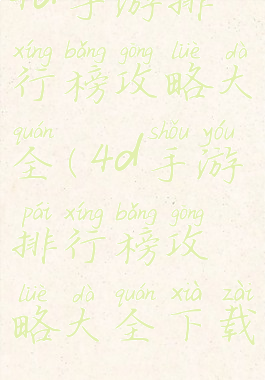 4d手游排
xíng bǎng gōng lüè dà
行榜攻略大
quán shǒu yóu
全(4d手游
pái xíng bǎng gōng
排行榜攻
lüè dà quán xià zài
略大全下载